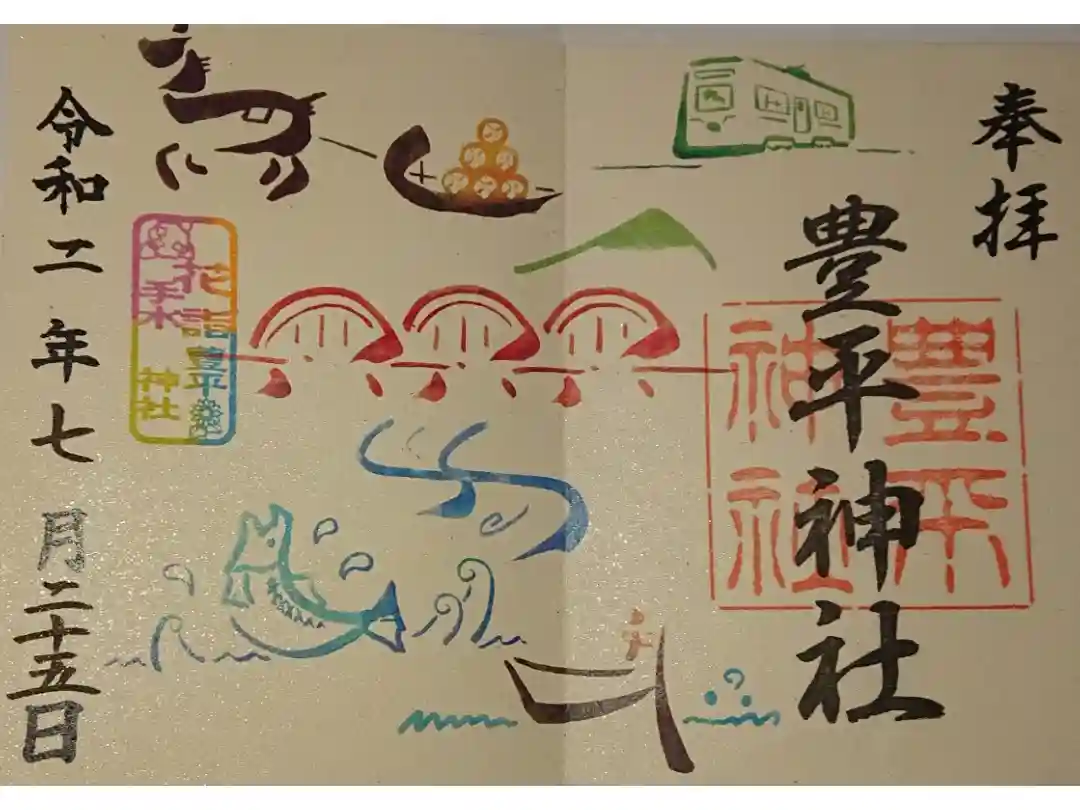 奉拝
豊平神社
豊平
神社
花詣喜平
御朱印
神社
令和二年七月二十五日